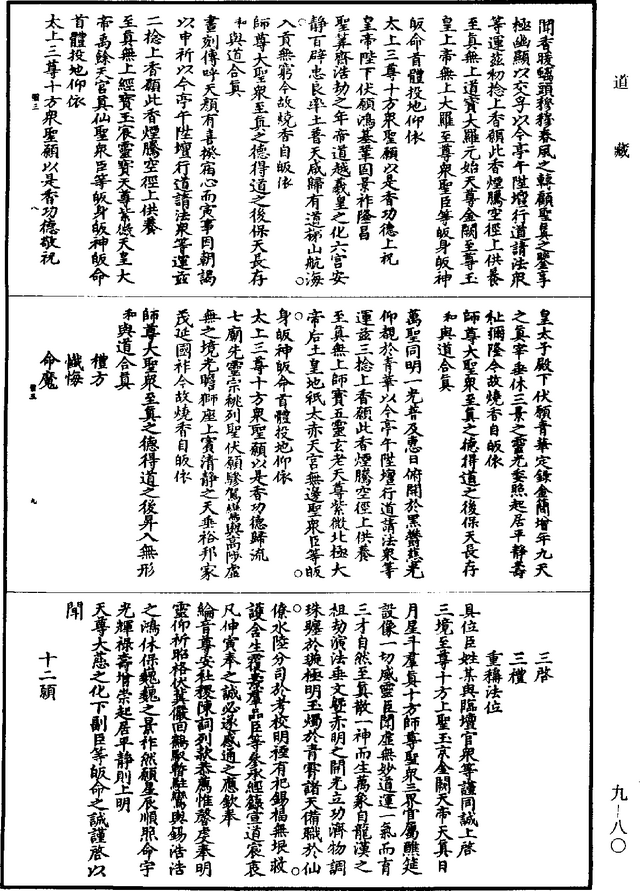 道藏
聞香暖螭頭穆穆春風之轉顧聖真之鑒享
極幽顯以交孚以今亭午陞壇行道請法衆
等運玆初捻上香願此香煙騰空徑上供養
至真無上道寶大羅元始天尊金闕至尊玉
皇上帝無上大羅至尊衆聖臣等皈身皈神
皈命首體投地仰依
太上三尊十方衆聖願以是香功德上祝
皇帝陛下伏願鴻基鞏固景祚隆昌
聖筭齊浩劫之年帝道越羲皇之化六宫安
静百辟忠良率土普天咸歸有道梯山航海
入貢無窮今故燒香自皈依
師尊大聖衆至真之德得道之後保天長存
和與道合真
晝刻傳呼天顔有喜揆寤心而寅事因朝謁
以申祈以今亭午陞壇行道請法衆等運玆
二捻上香願此香煙騰空徑上供養
至真無上經寶玉宸靈寶天尊紫微天皇大
帝禹餘天官真仙聖衆臣等皈身皈神皈命
首體投地仰依
太上三尊十方衆聖願以是香功德敬祝
皇太子殿下伏願青華定錄金簡增年九天
之真宰垂休三景之靈光垂照起居平静壽
祉彌隆今故燒香自皈依
師尊大聖衆至真之德得道之後保天長存
和與道合真
萬聖同明一光普及惠日俯開於黑欝慈光
仰覩於青華以今亭午陞壇行道請法衆等
運玆三捻上香願此香煙騰空徑上供養
至真無上師寶五靈玄老天尊紫微北極大
帝后土皇地祇太赤天宫無邊聖衆臣等皈
身皈神皈命首體投地仰依
太上三尊十方衆聖願以是香功德歸流
七廟先靈宗桃列聖伏願驂駕鸞輿高陟虚
無之境光瞻獅座上賓清静之天垂裕邦家
茂延國祚今故燒香自皈依
師尊大聖衆至真之德得道之後昇入無形
和與道合真
禮方
懺悔
命魔
三啓
三禮
重稱法位
具位臣姓某與臨壇官衆等謹同誠上啓
三境至尊十方上聖玉京金闕天帝天真日
月星斗羣真十方師尊聖衆三界官屬醮筵
設像一切威靈臣聞虚無妙道運一氣而育
三才自然至真散一神而生萬彙自龍漢之
祖劫演法垂文曁赤明之開光立功濟物調
珠躔於璇極明玉燭於青霄諸天備職於仙
僚水陸分司於考校明禋有祀錫福無垠救
護含生覆燾羣品臣等叅承經籙宣道宸衷
凡伸寅奉之誠必遂感通之應欽奉
綸音尊安社稷陳詞列狀恭薦惟馨虔奉明
靈仰祈昭格伏冀儼回鶴馭暫駐鸞輿錫浩浩
之鴻休保巍巍之景祚然願星辰順照命宇
光輝祿壽增崇起居平静則上明
天尊大慈之化下副臣等皈命之誠謹啓以
聞
十二願
九-八〇